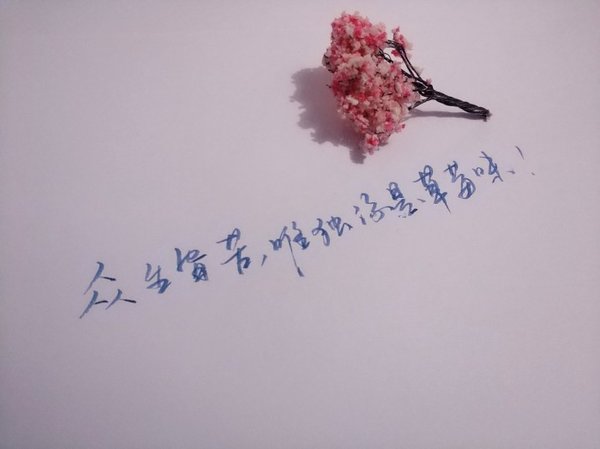 众生皆苦，唯独你是草莓味！